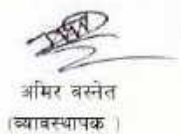 अमिर बस्नेत
(व्यावस्थापक )